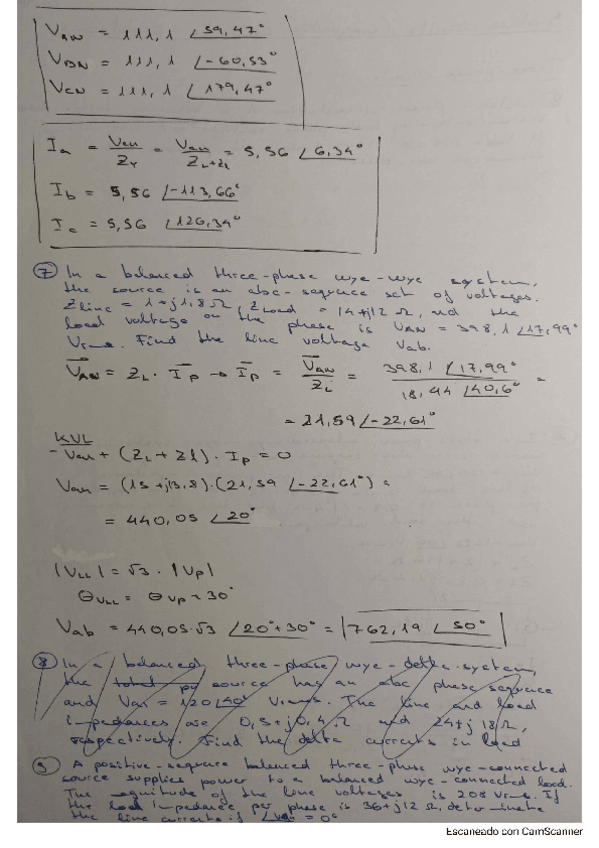 VAN = 111,1 ∠59,47°
VBN = 111,1 ∠-60,53°
VCN = 111,1 ∠179,47°
Ia = Van/ZY = Van/ZL+Zl = 5,56 ∠6,34°
Ib = 5,56 ∠-113,66°
Ic = 5,56 ∠126,34°
7 In a balanced three-phase wye-wye system,
the source is an abc-sequence set of voltages.
Zline = 1+j1,8 Ω, Zload = 14+j12 Ω, and the
load voltage on the phase is VAN = 398,1 ∠17,99°
Vrms. Find the line voltage Vab.
VAN = ZL · Ip → Ip = VAN/ZL = 398,1 ∠17,99° / 18,44 ∠40,6° =
= 21,59 ∠-22,61°
KVL
-Van + (ZL + Zl) · Ip = 0
Van = (15+j13,8)·(21,59 ∠-22,61°) =
= 440,05 ∠20°
|VLL| = √3 · |Vp|
θVLL = θVp + 30°
Vab = 440,05·√3 ∠20°+30° = 762,19 ∠50°
8 In a balanced three-phase wye-delta system,
the total source has an abc phase sequence
and Van = 120 ∠40° Vrms. The line and load
impedances are 0,5+j0,4 Ω and 24+j18 Ω,
respectively. Find the delta currents in load
9 A positive-sequence balanced three-phase wye-connected
source supplies power to a balanced wye-connected load.
The magnitude of the line voltages is 208 Vrms. If
the load impedance per phase is 36+j12 Ω, determinate
the line currents if ∠Van = 0°
Escaneado con CamScanner